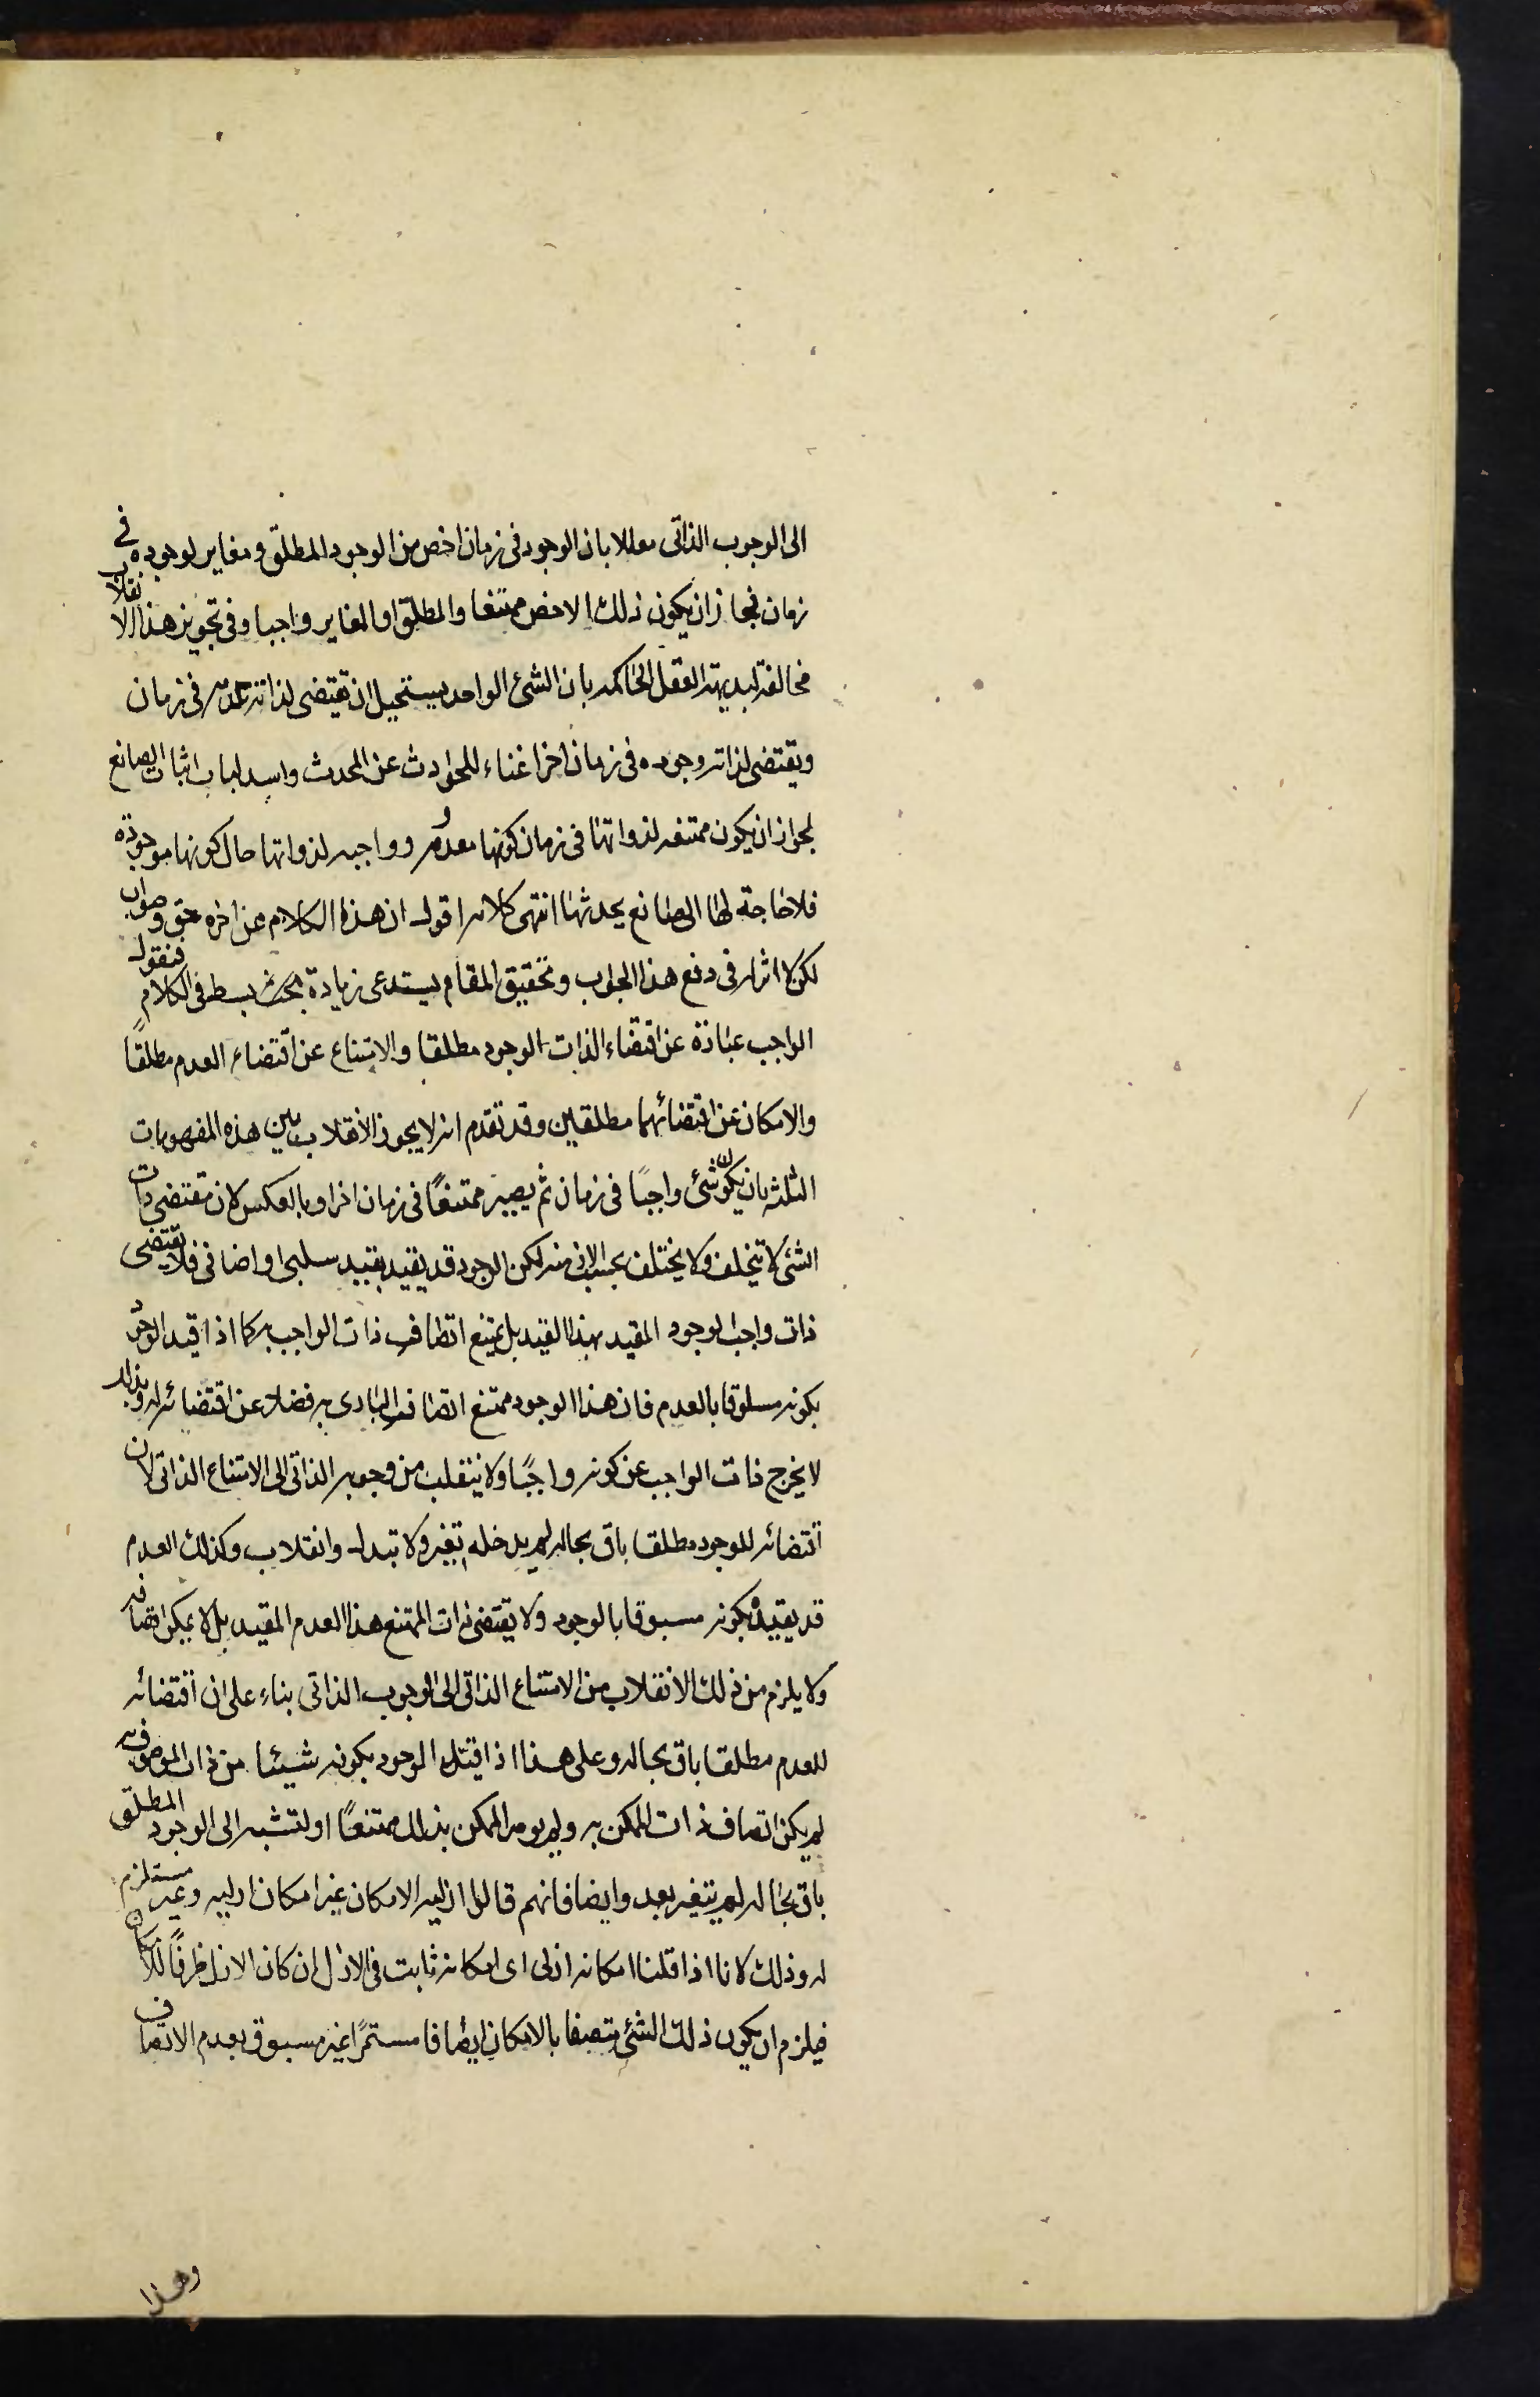 الى الوجوب الذاتى معللا بان الوجود فى زمان اخص من الوجود المطلق ومغاير لوجوده فى
زمان فجاز ان يكون ذلك الاخص ممتنعا والمطلق او المغاير واجبا وفى تجويز هذا الانقلاب
مخالفة لبديهة العقل الحاكمه بان الشئ الواحد يستحيل ان يقتضى لذاته عدمه فى زمان
ويقتضى لذاته وجوده فى زمان اخر اغناء للحوادث عن المحدث واسد لباب اثبات الصانع
لجواز ان يكون ممتنعه لذواتها فى زمان كونها معدومه وواجبه لذواتها حال كونها موجودة
فلا حاجة لها الى صانع يحدثها انتهى كلامه اقول ان هذا الكلام عن اخره حق وصواب
لكن لا اثر له فى دفع هذا الجواب وتحقيق المقام يستدعى زيادة بحث بسط فى الكلام فنقول
الواجب عبارة عن اقتضاء الذات الوجود مطلقا والامتناع عن اقتضاء العدم مطلقًا
والامكان عن اقتضائهما مطلقين وقد تقدم انه لا يجوز الانقلاب بين هذه المفهومات
الثلثه بان يكون شئ واجبًا فى زمان ثم يصير ممتنعًا فى زمان اخر او بالعكس لان مقتضى ذات
الشئ لا يتخلف ولا يختلف بحسب الازمنه لكن الوجود قد يقيد بقيد سلبى او اضافى فلا يقتضى
ذات واجب الوجود المقيد بهذا القيد بل يمتنع اتصاف ذات الواجب به كما اذا قيد الوجود
بكونه مسبوقا بالعدم فان هذا الوجود ممتنع اتصاف البارى به فضلا عن اقتضائه له وبذلك
لا يخرج ذات الواجب عن كونه واجبًا ولا ينقلب من وجوبه الذاتى الى الامتناع الذاتى لان
اقتضائه للوجود مطلقا باق بحاله لم يدخله تغير ولا تبدل وانقلاب وكذلك العدم
قد يقيد بكونه مسبوقا بالوجود ولا يقتضى ذات الممتنع هذا العدم المقيد بل لا يمكن اتصافه
ولا يلزم من ذلك الانقلاب من الامتناع الذاتى الى الوجوب الذاتى بناء على ان اقتضائه
للعدم مطلقا باق بحاله وعلى هذا اذا قيد الوجود بكونه شيئا من ذات الموصوف به
لم يكن اتصاف ذات الممكن به ولم يعد الممكن بذلك ممتنعًا اولتشبه الى الوجود المطلق
باق بحاله لم يتغير بعد وايضا فانهم قالوا ازليه الامكان غير امكان ازليه وغير مستلزم
له وذلك لانا اذا قلنا امكانه ازلى اى امكانه ثابت فى الازل ان كان الازل ظرفًا للامكان
فيلزم ان يكون ذلك الشئ متصفا بالامكان اتصافا مستمرًا غير مسبوق بعدم الاتصاف
وهذا